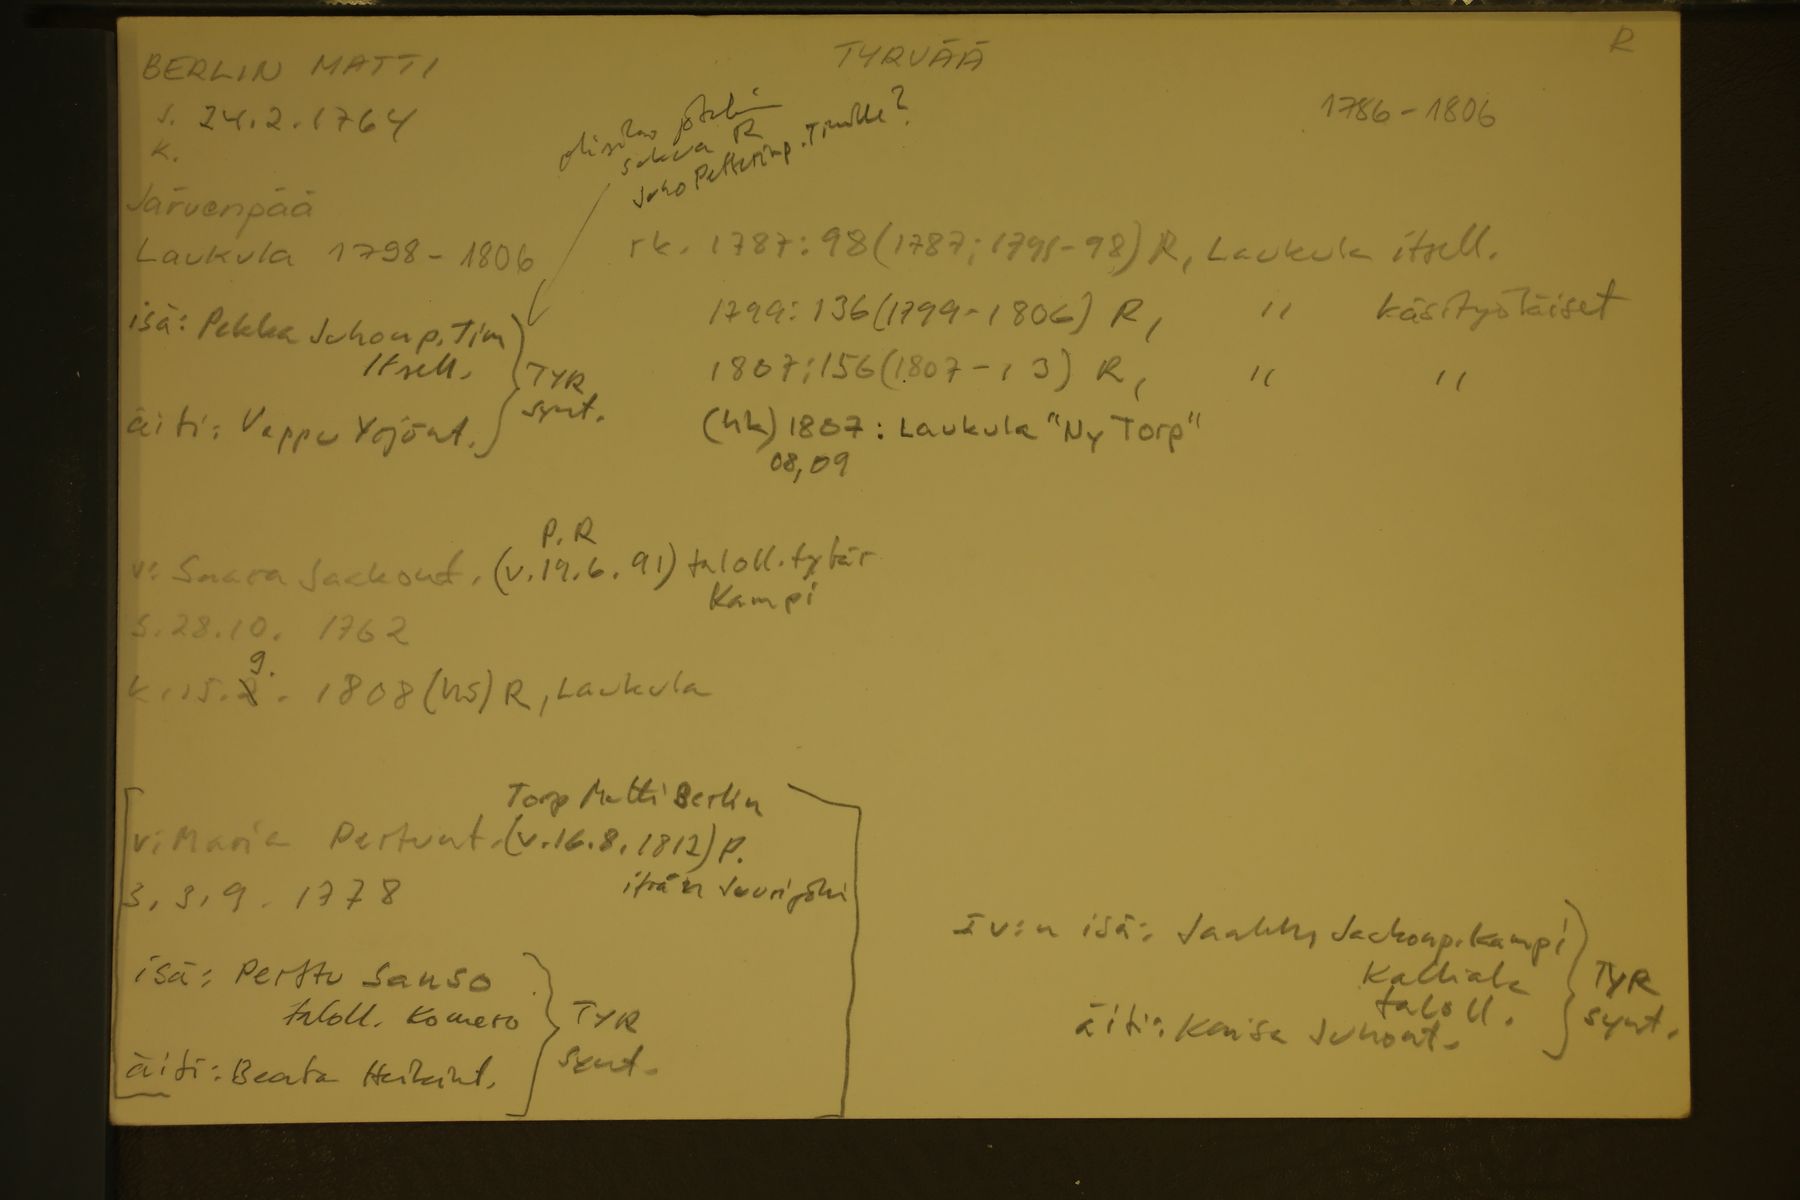 BERLIN MATTI
TYRVÄÄ
R
s. 24.2.1764
1786-1806
k.
R
Juho Petterinp. ?
Järvenpää
Laukula 1798-1806
rk. 1787:98(1787; 1795-98) R, Laukula itsell.
1799:136(1799-1806) R, " käsityöläiset
1807:156(1807-13) R, " "
(hk) 1807: Laukula "Ny Torp"
08,09
isä: Pekka Juhonp. Tim
Itsell.
äiti: Vappu Yrjönt.
TYR
synt.
P. R
v: Saara Jaakont. (v.19.6.91) taloll. tytär
Kampi
s.28.10. 1762
9.
k.15.2. 1808 (hs) R, Laukula
Torp Matti Berlin
v: Maria Pertunt. (v.16.8.1812) P.
itsän Suurijoki
s. 3.9. 1778
isä: Perttu Sanso
taloll. Komero
äiti: Beata Heikint.
TYR
synt.
I v:n isä: Jaakko Jaakonp. Kampi
Kalliala
taloll.
äiti: Kaisa Juhont.
TYR
synt.